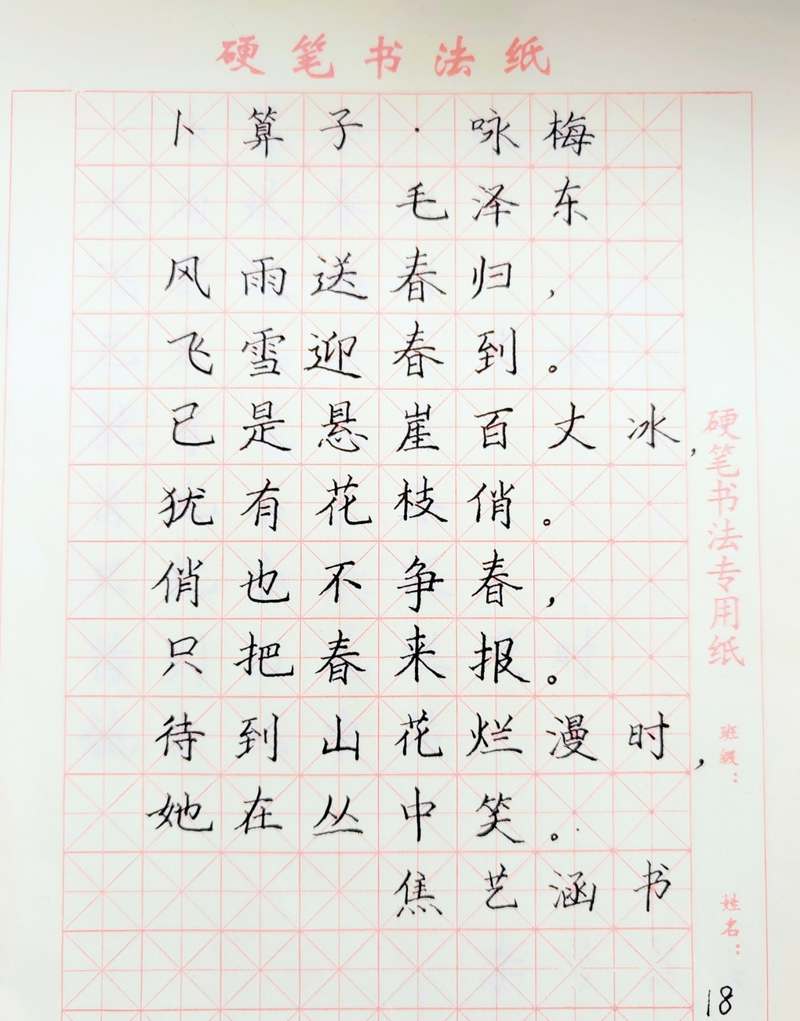 硬笔书法纸
卜算子·咏梅
毛泽东
风雨送春归，
飞雪迎春到。
已是悬崖百丈冰，
犹有花枝俏。
俏也不争春，
只把春来报。
待到山花烂漫时，
她在丛中笑。
焦艺涵书
硬笔书法专用纸
班级：
姓名：
18